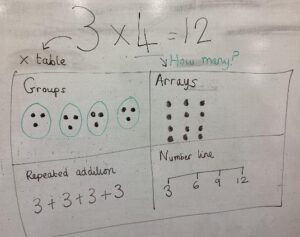 3 × 4 = 12
x table
How many?
Groups
Arrays
Repeated addition
3 + 3 + 3 + 3
Number line
3 6 9 12